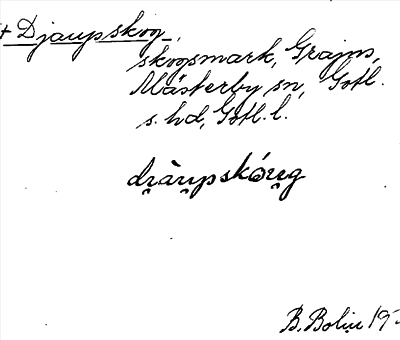 + Djaupskog,
skogsmark, Grajns,
Mästerby sn, Gotl.
s. hd, Gotl. l.
dı̯àu̯pskóu̯g
B. Bolin 19